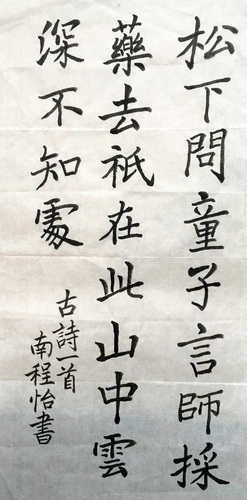 松下問童子言師採
藥去祇在此山中雲
深不知處
古詩一首
南程怡書